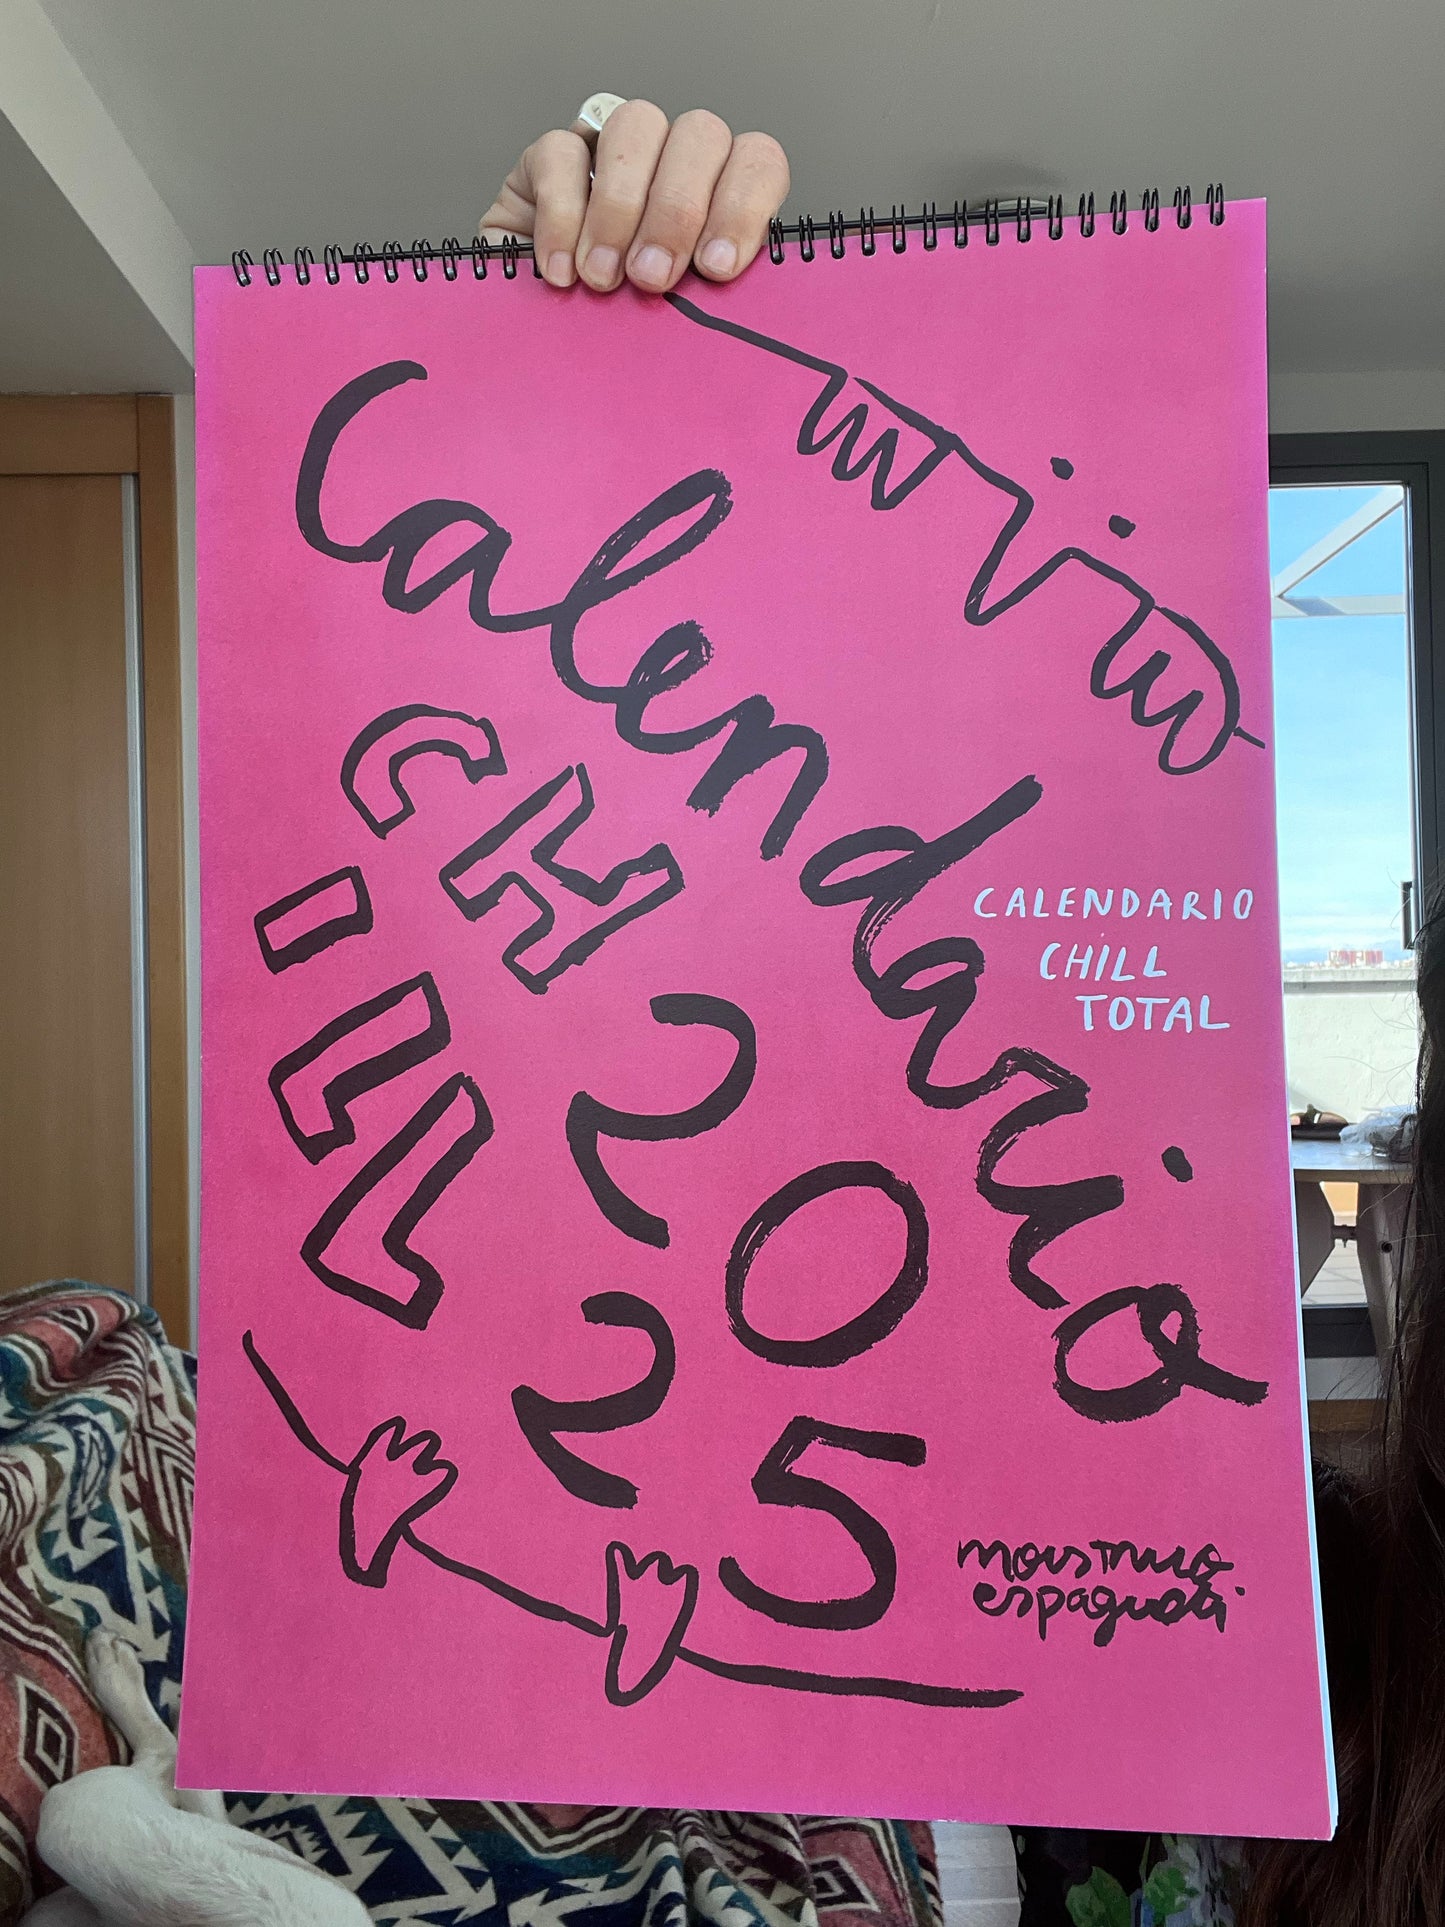 Calendario
CHILL
2025
CALENDARIO
CHILL
TOTAL
monstruo
espagueti